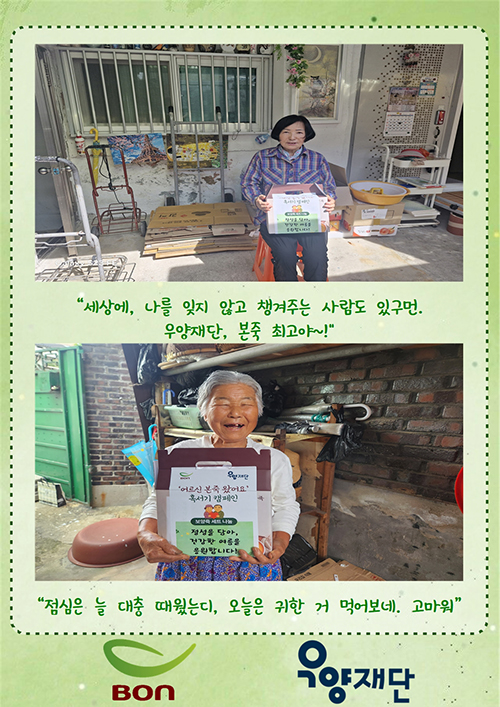 “세상에, 나를 잊지 않고 챙겨주는 사람도 있구먼.
우양재단, 본죽 최고야~!"
BON
우양재단
'어르신 본죽 왔어요'
혹서기 캠페인
보양죽 세트 나눔
정성을 담아,
건강한 여름을
응원합니다!
“점심은 늘 대충 때웠는디, 오늘은 귀한 거 먹어보네. 고마워”
BON
우양재단